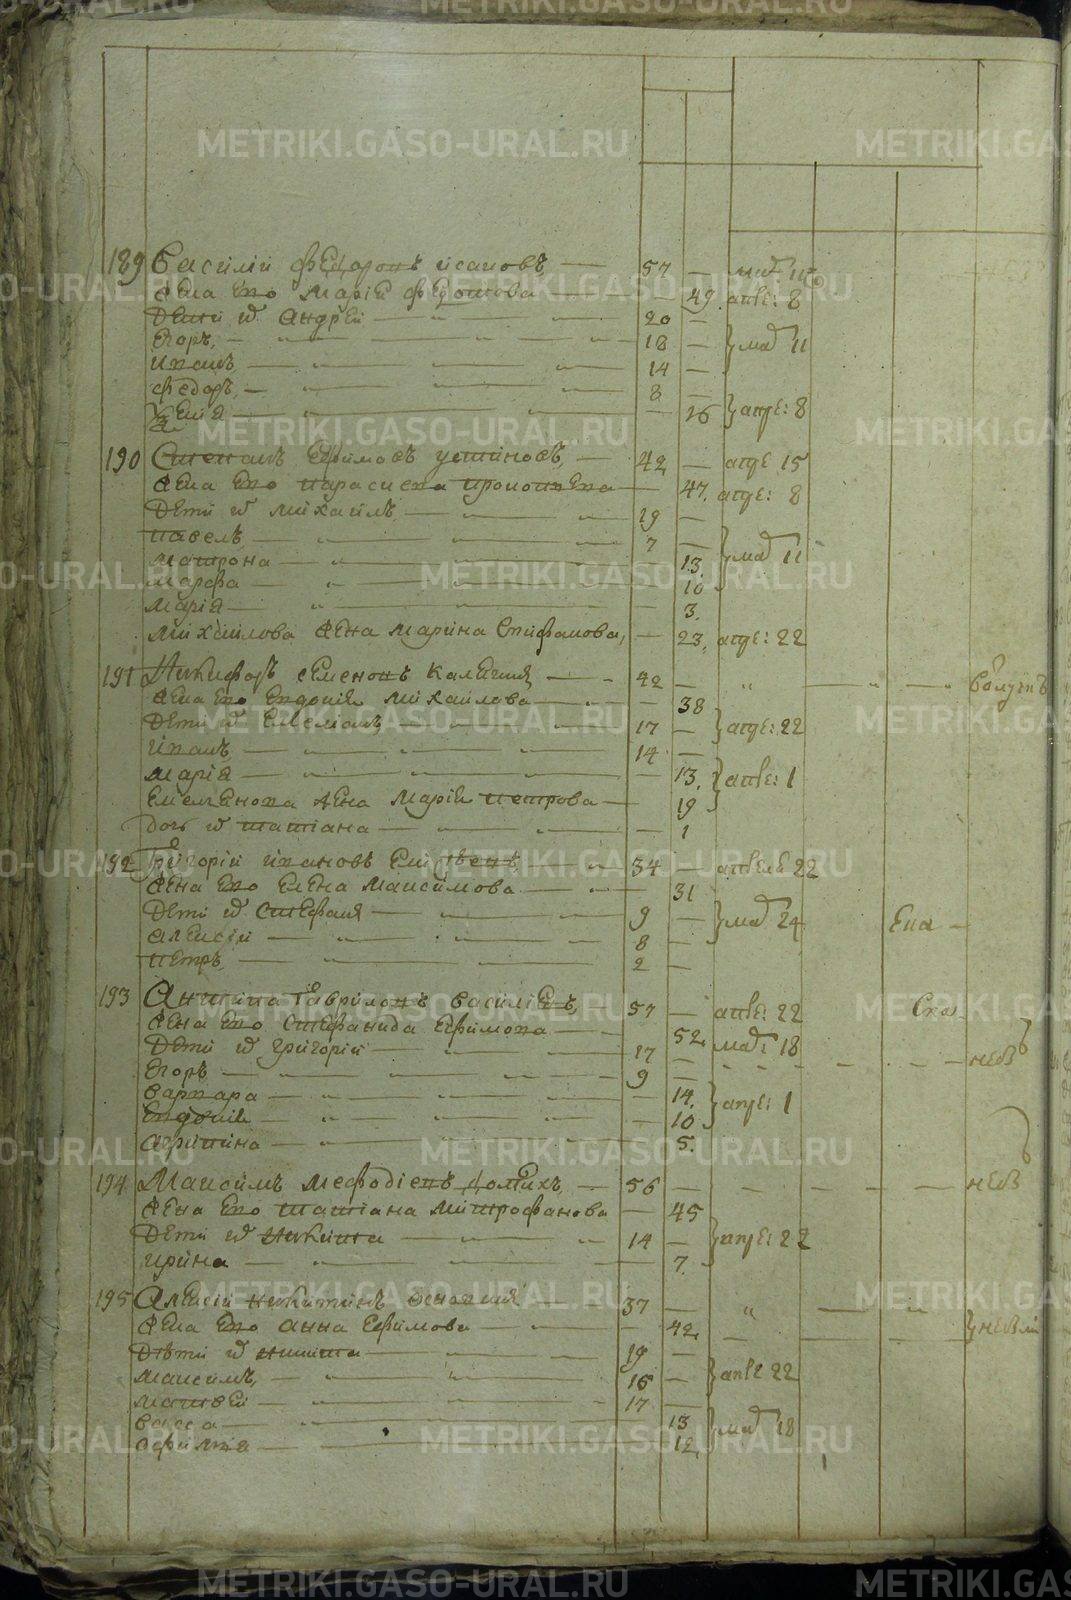 189 Василий Федоровъ Исаковъ — 57 — маѧ 15
жена ево Марiѧ Федотова — 49 апре: 8
дети их Андрей — 20 —
Егоръ — 18 — маѧ 11
Иванъ — 14 —
Федоръ — 8 —
— 16 апре: 8
190 Степанъ Ефимовъ Устиновъ — 42 — апре 15
жена ево Парасковѧ — 47 апре: 8
дети их Михаилъ — 19 —
Павелъ — 7 — маѧ 11
Матрона — 13
Марфа — 10
Марiѧ — 3
Михаилова жена Марина Стифанова — 23 апре: 22
191 Никифоръ Семеновъ — 42 — " — "
жена ево Евдокиѧ Михаилова — 38
дети их Емелiанъ — 17 — апре: 22
Иванъ — 14 —
Марiѧ — 13 апре: 1
Емелѧнова жена Марiѧ Петрова — 19
дочь их Татiана — 1
192 Григорiй Ивановъ — 34 — апреле 22
жена ево Елена Максимова — 31
дети их Стефанъ — 9 — маѧ 24 Ека —
Алексiй — 8 —
Петръ — 2 —
193 Аникита Гавриловъ Василiевъ — 57 — апре: 22
жена ево Стефанида Ефимова — 52 маѧ 18
дети их Григорiй — 17 — нев
Егоръ — 9 —
Варвара — 14 апре: 1
Евдокиѧ — 10
Агрипина — 5
194 Максимъ Мефодiевъ — 56 — нев
жена ево Татiана Митрофанова — 45
дети их Никита — 14 — апре: 22
Ирина — 7
195 Алексiй Никитинъ — 37 — "
жена ево Анна Ефимова — 42
дети их Никита — 19 —
Максимъ — 16 — апре 22
Матвей — 17 —
Васса — 13 маѧ 18
Афимiѧ — 12
METRIKI.GASO-URAL.RU